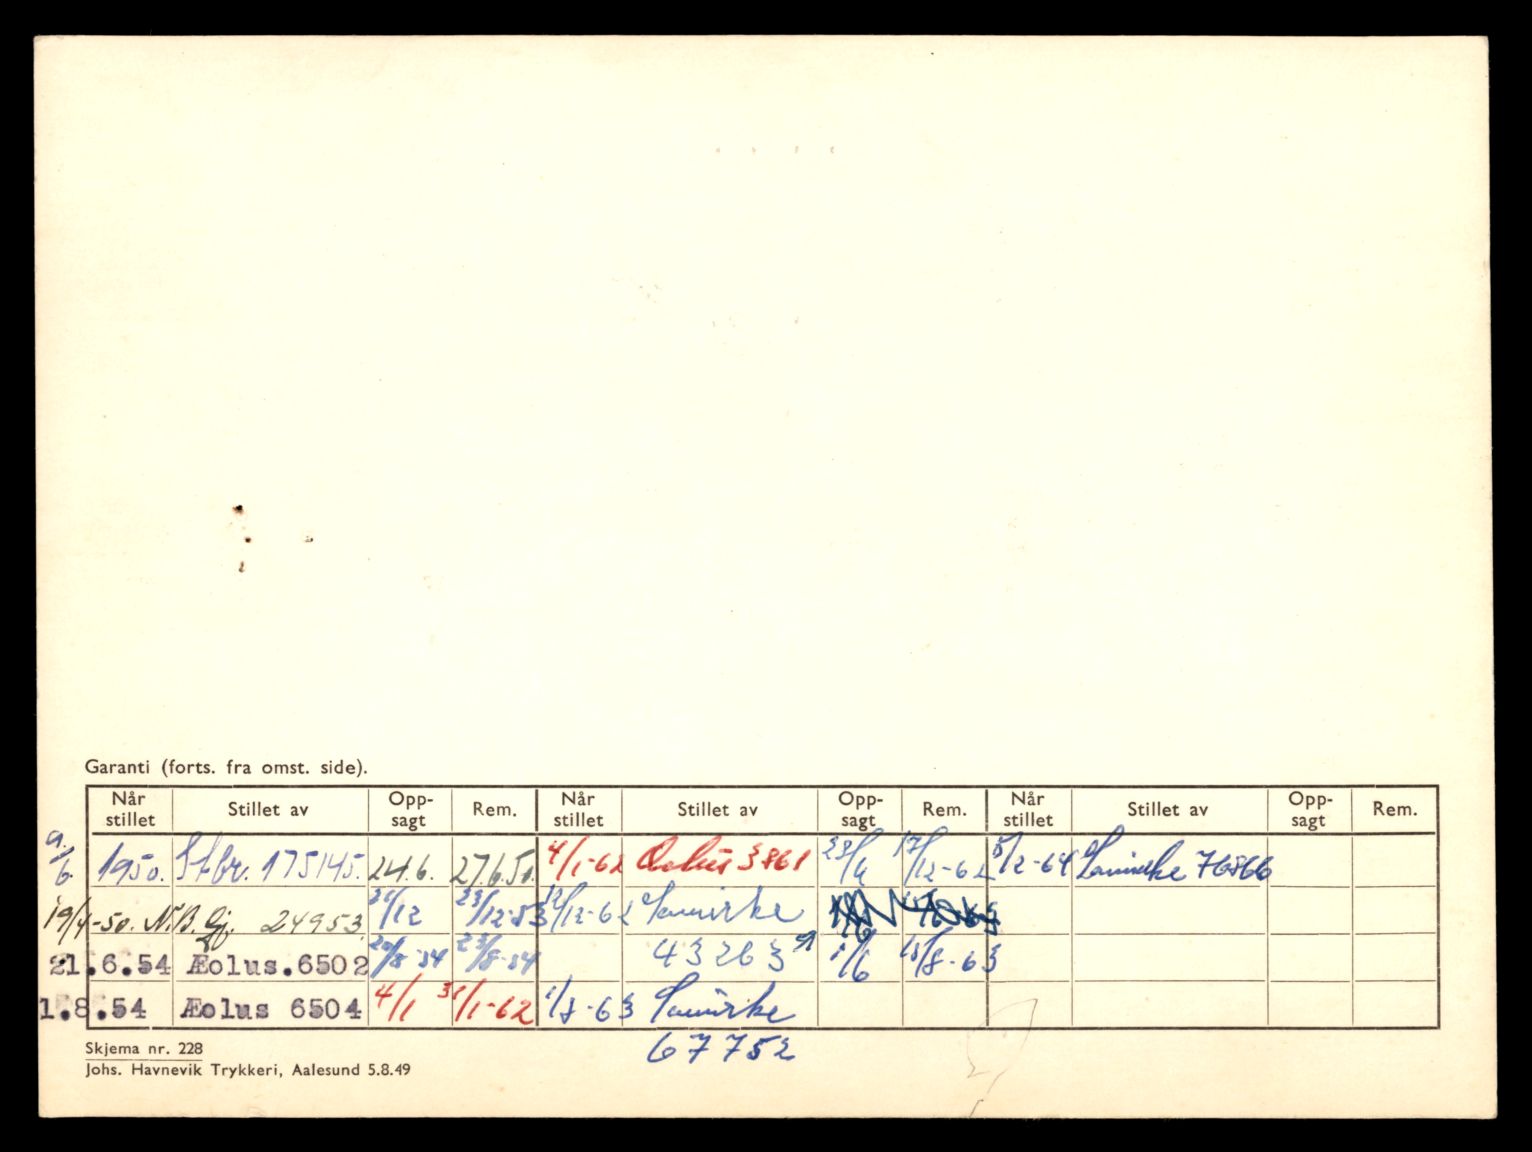 Garanti (forts. fra omst. side).
Når stillet Stillet av Opp-sagt Rem. Når stillet Stillet av Opp-sagt Rem. Når stillet Stillet av Opp-sagt Rem.
9/6 1950. St.br. 175145. 24.6. 27.6.50. 4/1-62 3861 23/4 17/12-62 5/2-64 Samvirke 76566
19/4-50. N.B. Gj. 24953. 21/12 23/12-53 12/12-62 Samvirke
21.6.54 Æolus.6502 20/8-54 23/8-54 43263 1/6 13/8-63
1.8.54 Æolus 6504 4/1 31/1-62 1/8-63 Samvirke
67752
Skjema nr. 228
Johs. Havnevik Trykkeri, Aalesund 5.8.49